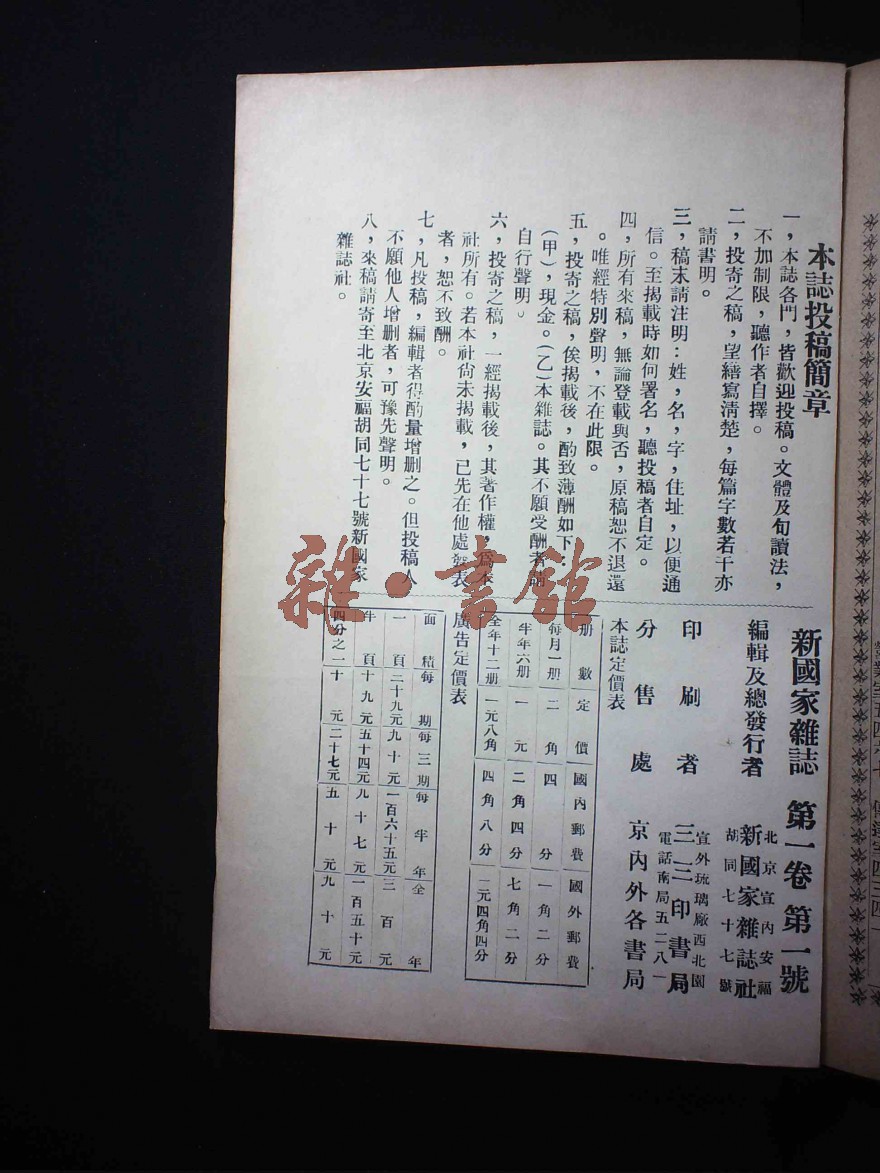 本誌投稿簡章
一，本誌各門，皆歡迎投稿。文體及句讀法，
不加制限，聽作者自擇。
二，投寄之稿，望繕寫淸楚，每篇字數若干亦
請書明。
三，稿末請注明：姓，名，字，住址，以便通
信。至揭載時如何署名，聽投稿者自定。
四，所有來稿，無論登載與否，原稿恕不退還
。唯經特別聲明，不在此限。
五，投寄之稿，俟揭載後，酌致薄酬如下：
（甲），現金。（乙）本雜誌。其不願受酬者請
自行聲明。
六，投寄之稿，一經揭載後，其著作權，爲本
社所有。若本社尙未揭載，已先在他處發表
者，恕不致酬。
七，凡投稿，編輯者得酌量增删之。但投稿人
不願他人增删者，可豫先聲明。
八，來稿請寄至北京安福胡同七十七號新國家
雜誌社。
新國家雜誌 第一卷 第一號
編輯及總發行者
北京宣內安福
胡同七十七號
新國家雜誌社
印刷者
宣外琉璃廠西北園
電話南局五二八一
三三印書局
分售處 京內外各書局
本誌定價表
册數 定價 國內郵費 國外郵費
每月一册 二角 四分 一角二分
半年六册 一元 二角四分 七角二分
全年十二册 一元八角 四角八分 一元四角四分
廣告定價表
面積 每期 每三期 每半年 全年
一頁 二十九元 九十元 一百六十五元 三百元
半頁 十九元 五十四元 九十七元 一百五十元
四分之一 十元 二十七元 五十元 九十元
雜·書館